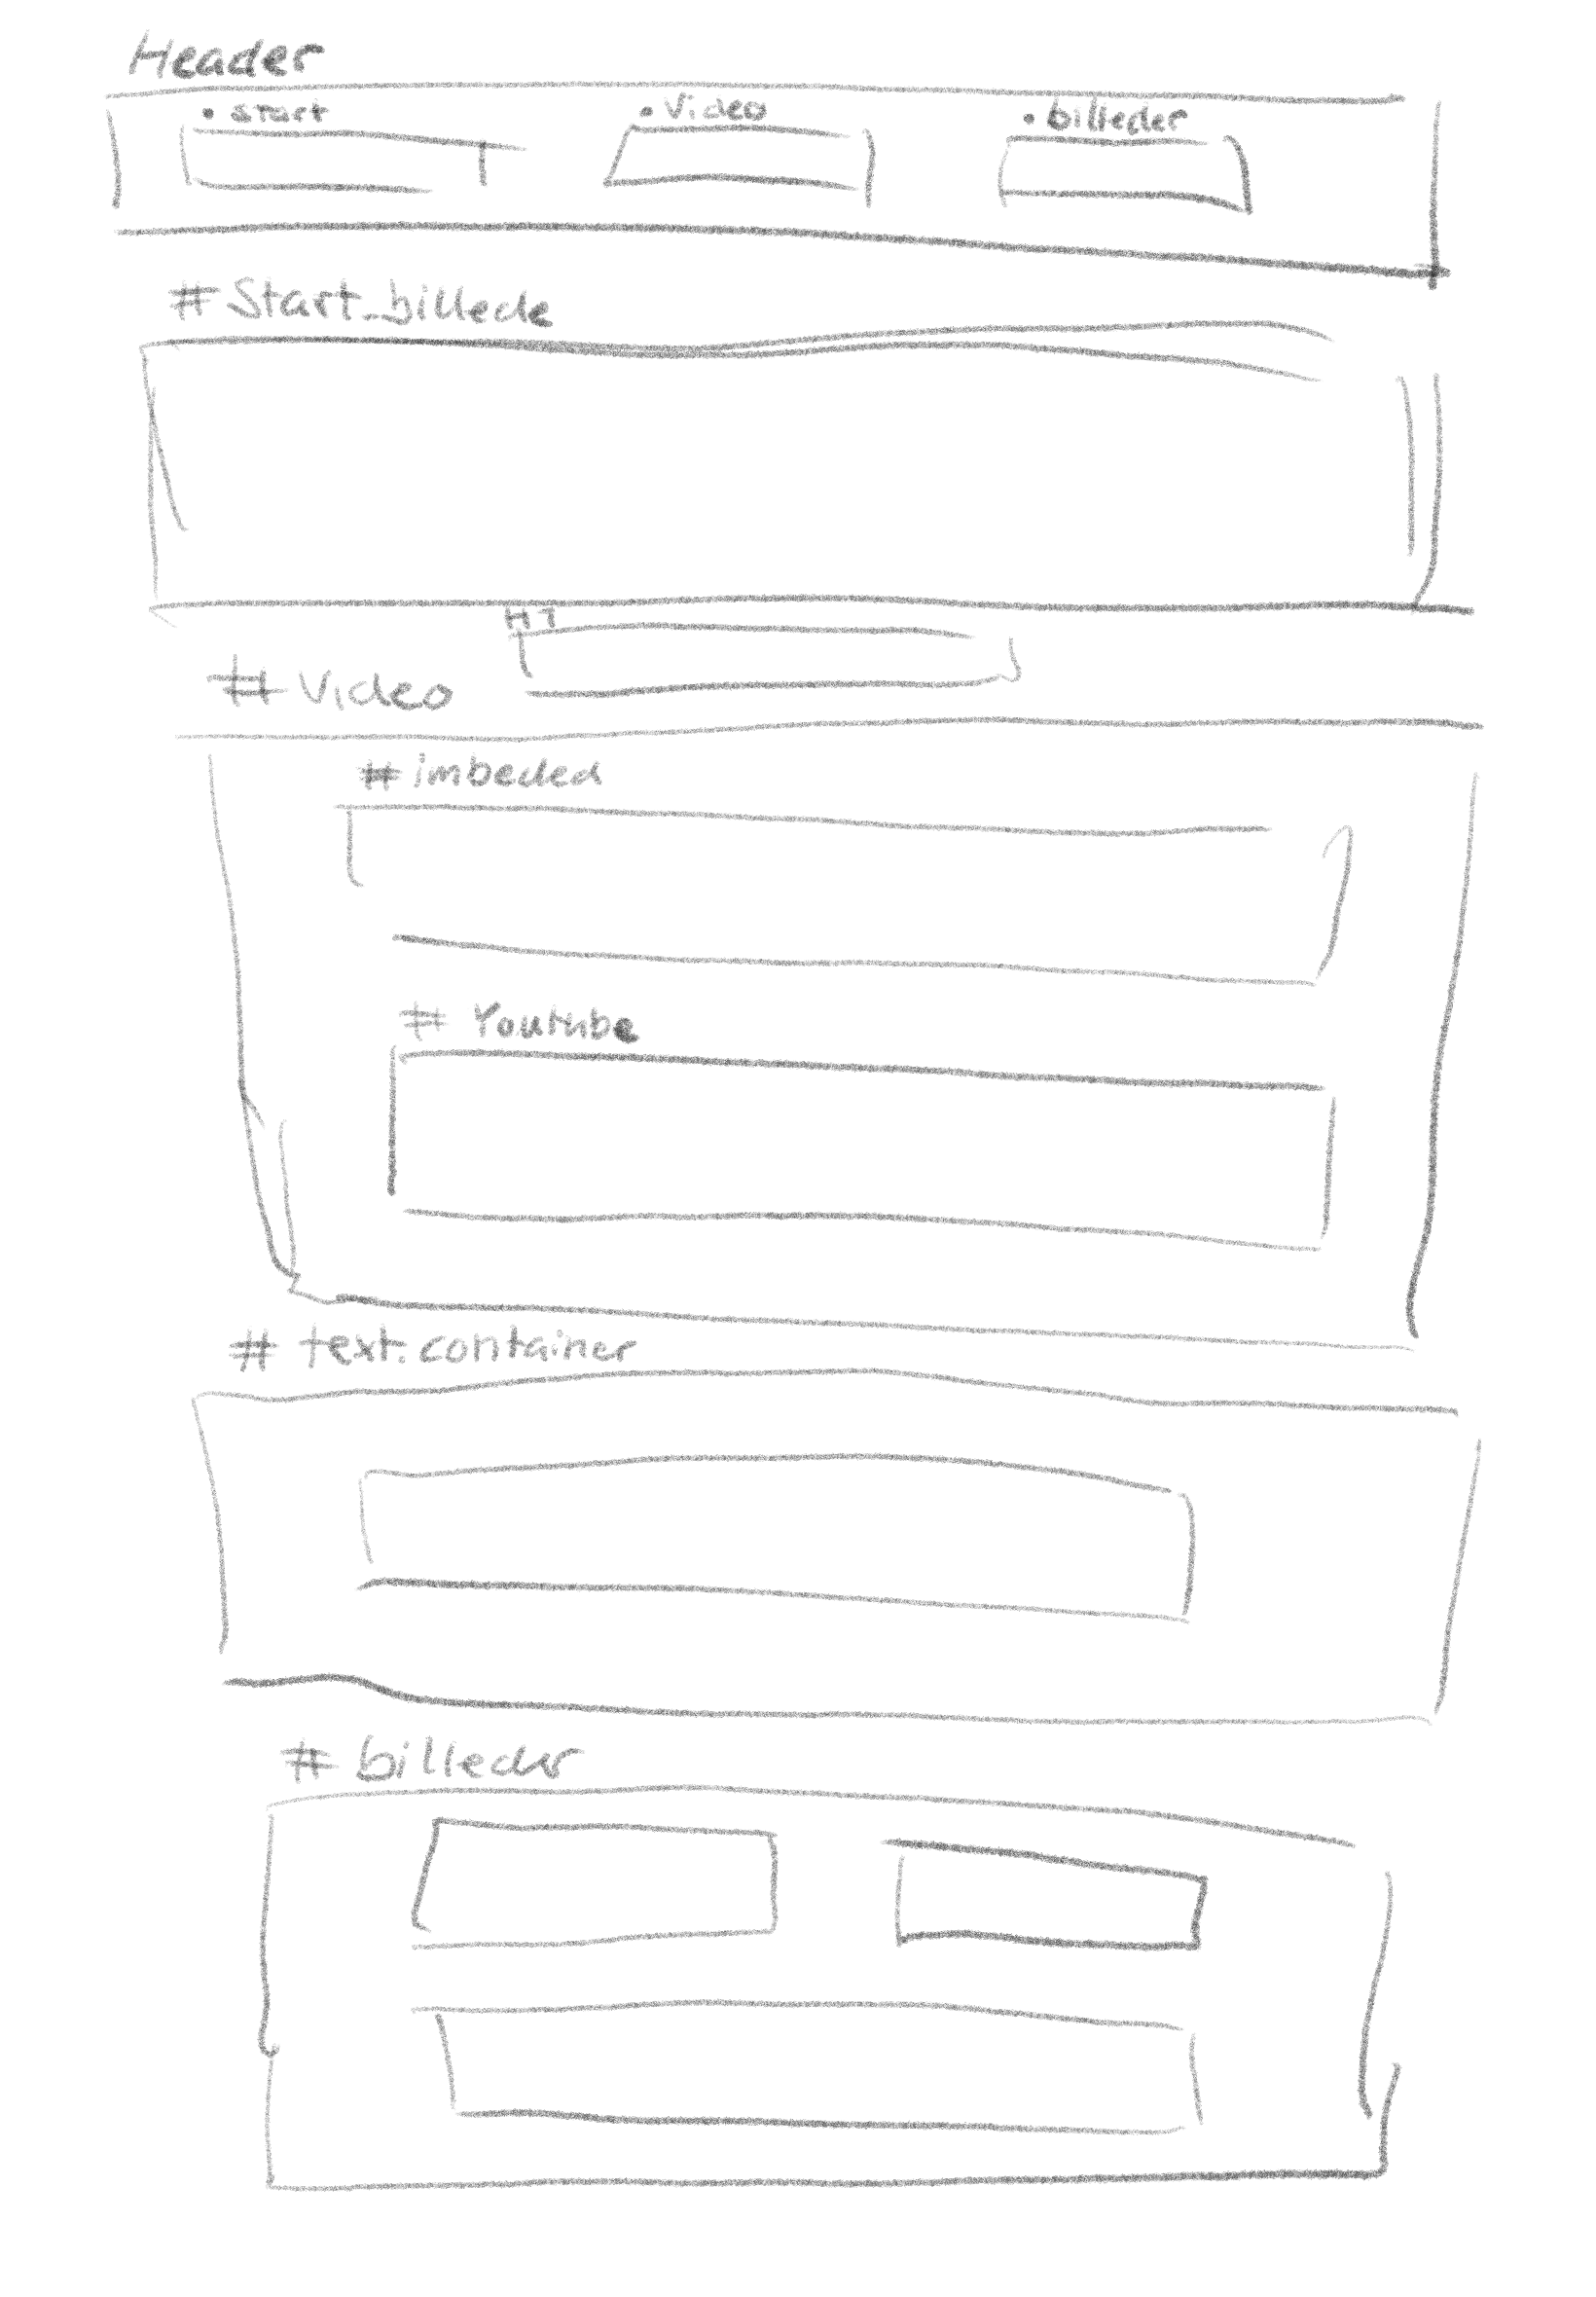 Header
• start • Video • billeder
# Start_billede
H1
# Video
# imbeded
# Youtube
# text.container
# billeder